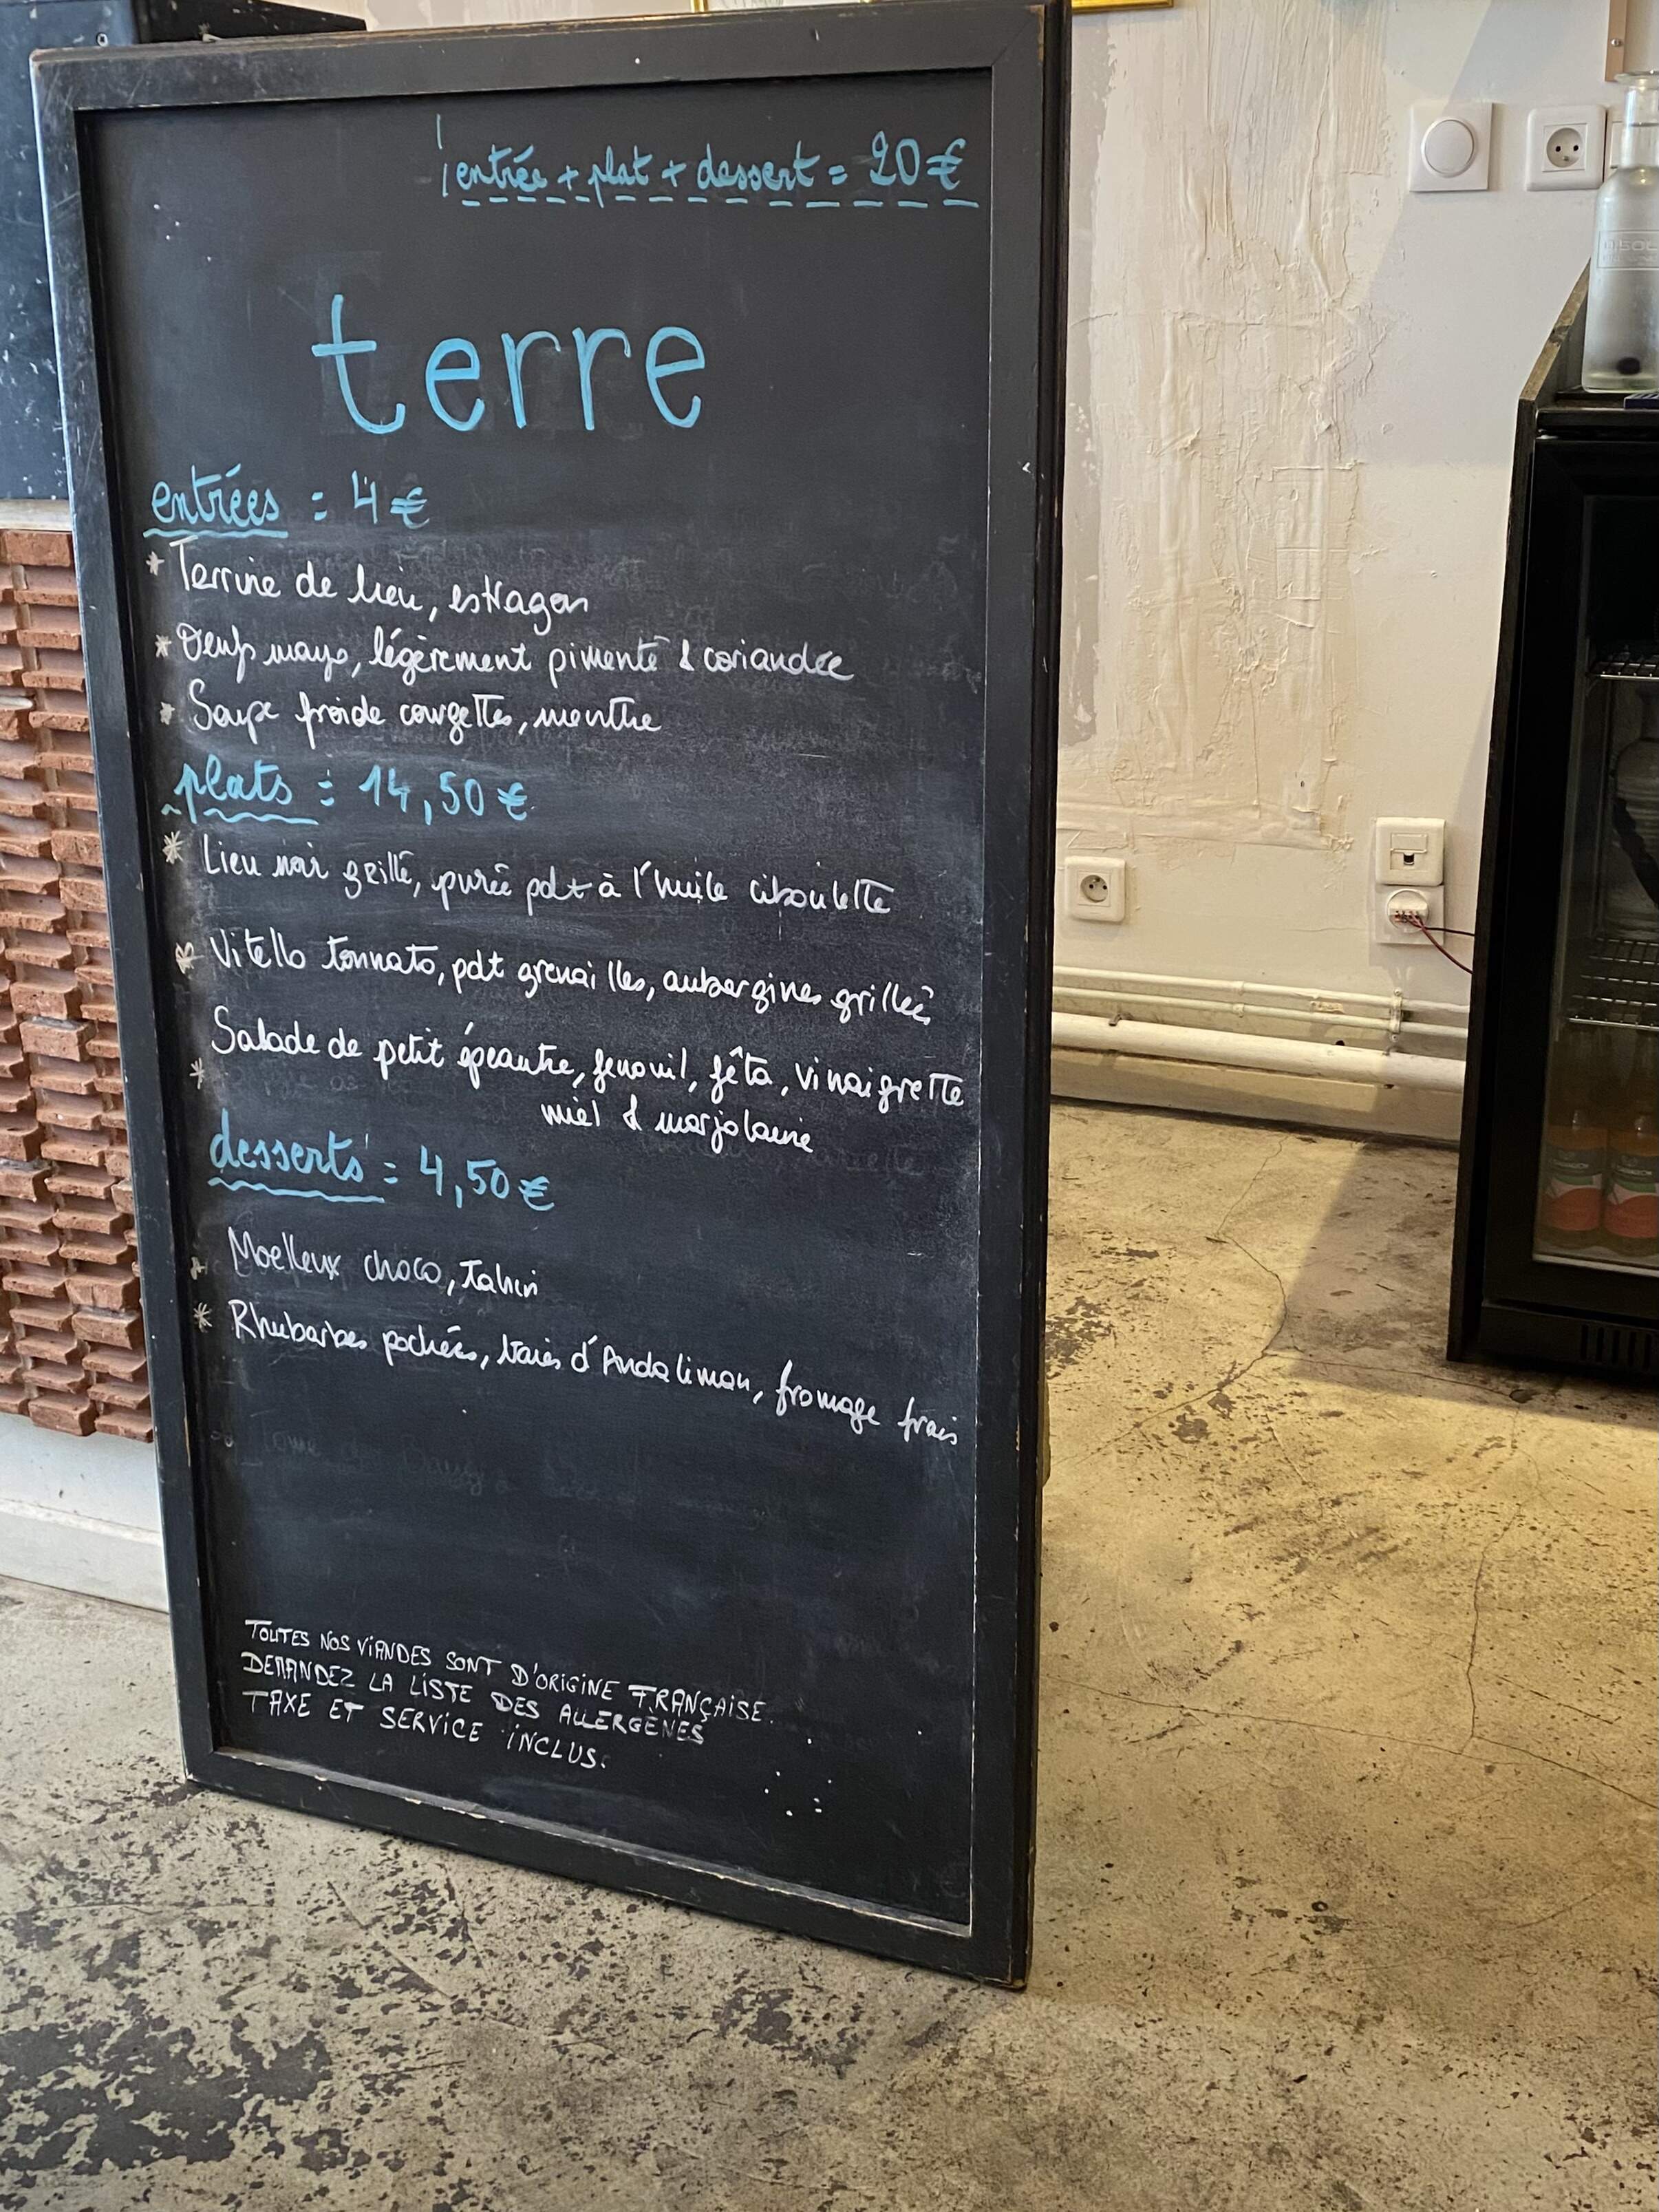 entrée + plat + dessert = 20 €
terre
entrées = 4 €
* Terrine de lieu, estragon
* Oeufs mayo, légèrement pimenté & coriandre
* Soupe froide courgettes, menthe
plats : 14,50 €
* Lieu noir grillé, purée pdt à l'huile ciboulette
* Vitello tonnato, pdt grenailles, aubergines grillées
* Salade de petit épeautre, fenouil, fêta, vinaigrette
miel & marjolaine
desserts = 4,50 €
* Moelleux choco, Tahin
* Rhubarbes pochées, baies d'Andaliman, fromage frais
TOUTES NOS VIANDES SONT D'ORIGINE FRANÇAISE.
DEMANDEZ LA LISTE DES ALLERGÈNES
TAXE ET SERVICE INCLUS.